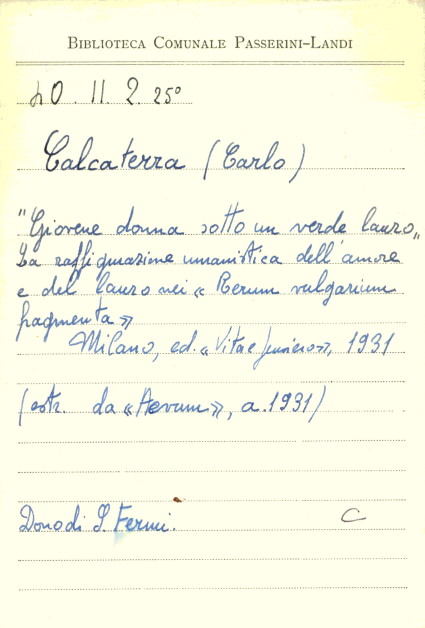 BIBLIOTECA COMUNALE PASSERINI-LANDI
40. 11. 2. 25°
Calcaterra (Carlo)
"Giovene donna sotto un verde lauro„
La raffigurazione umanistica dell'amore
e del lauro nei « Rerum vulgarium
fragmenta »
Milano, ed. « Vita e pensiero », 1931
(estr. da « Aevum », a. 1931)
Dono di S. Fermi.
C